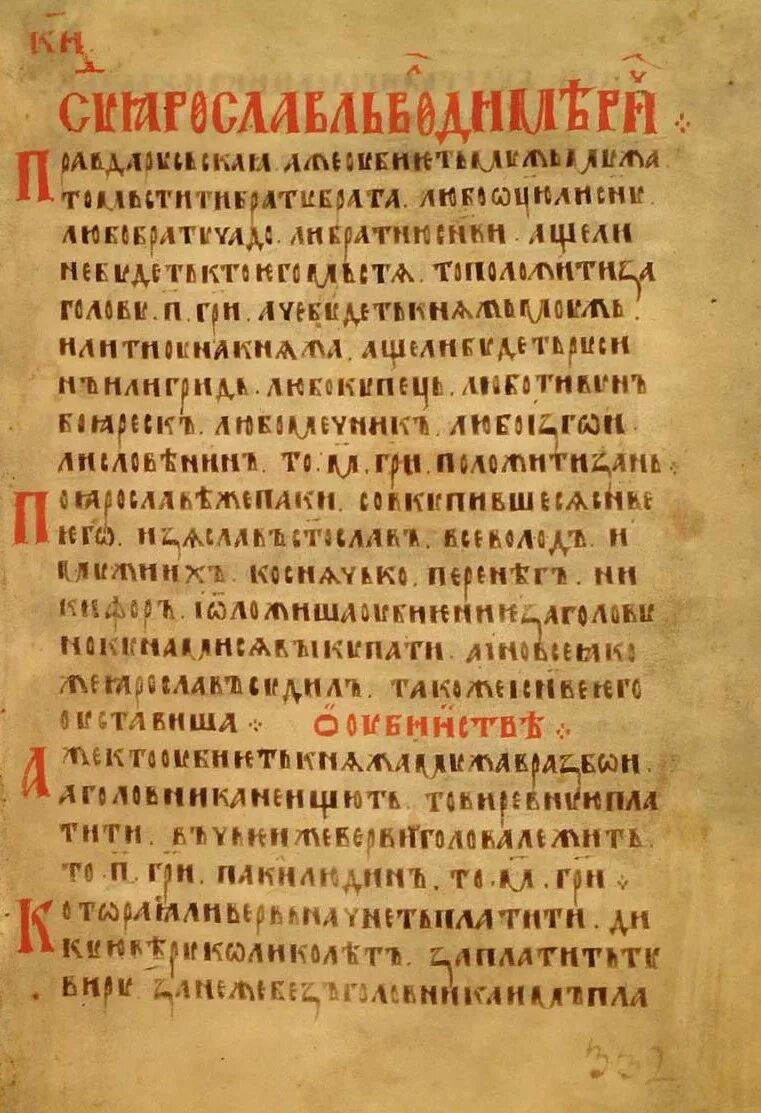 кн҃
СꙊДЪꙖРОСЛАВЛЬВОДИМѢРИ
Правдароусьскаꙗ. ажеоубиетьмꙋжьмꙋжа
томьститибратꙋбрата. любоѡцюлисн҃ꙋ
любобратꙋчадо. либратнюсн҃ви. ащели
небꙋдетьктоꙗегомьстѧ. тоположитиза
головꙋ. п҃. грн҃. ачебꙋдетькнѧжьмꙋжь.
илитиоунакнѧжа. ащелибꙋдетьрꙋси
нъилигридь. любокꙋпець. люботивꙋнъ
боꙗрескъ. любомечникъ. любоизгои.
лисловѣнинъ. то. м҃. грн҃. положитизань
Поꙗрославѣжепаки. совкꙋпившесѧсн҃ве
ѥго. изѧславъст҃ославъ. всеволодъ. и
мꙋжиихъ. коснѧчько. перенѣгъ. ни
кифоръ. иѿложишаоубиениезаголовꙋ
нокꙋнамисѧвыкꙋпати. аиновсеꙗко
жеꙗрославъсꙋдилъ. такожеисн҃веѥго
оуставиша. Ѡоубииствѣ
Ажектооубиетькнѧжамꙋжавразбои.
аголовниканеищють. товиревнꙋюпла
тити. въчьеижевервиголовалежить
то. п҃. грн҃. пакилюдинъ. то. м҃. грн҃
Котораꙗливервьначнетьплатити. ди
кꙋювѣрꙋколиколѣтъ. заплатитьтꙋ
вирꙋ. занежебезъголовникаимъпла
332